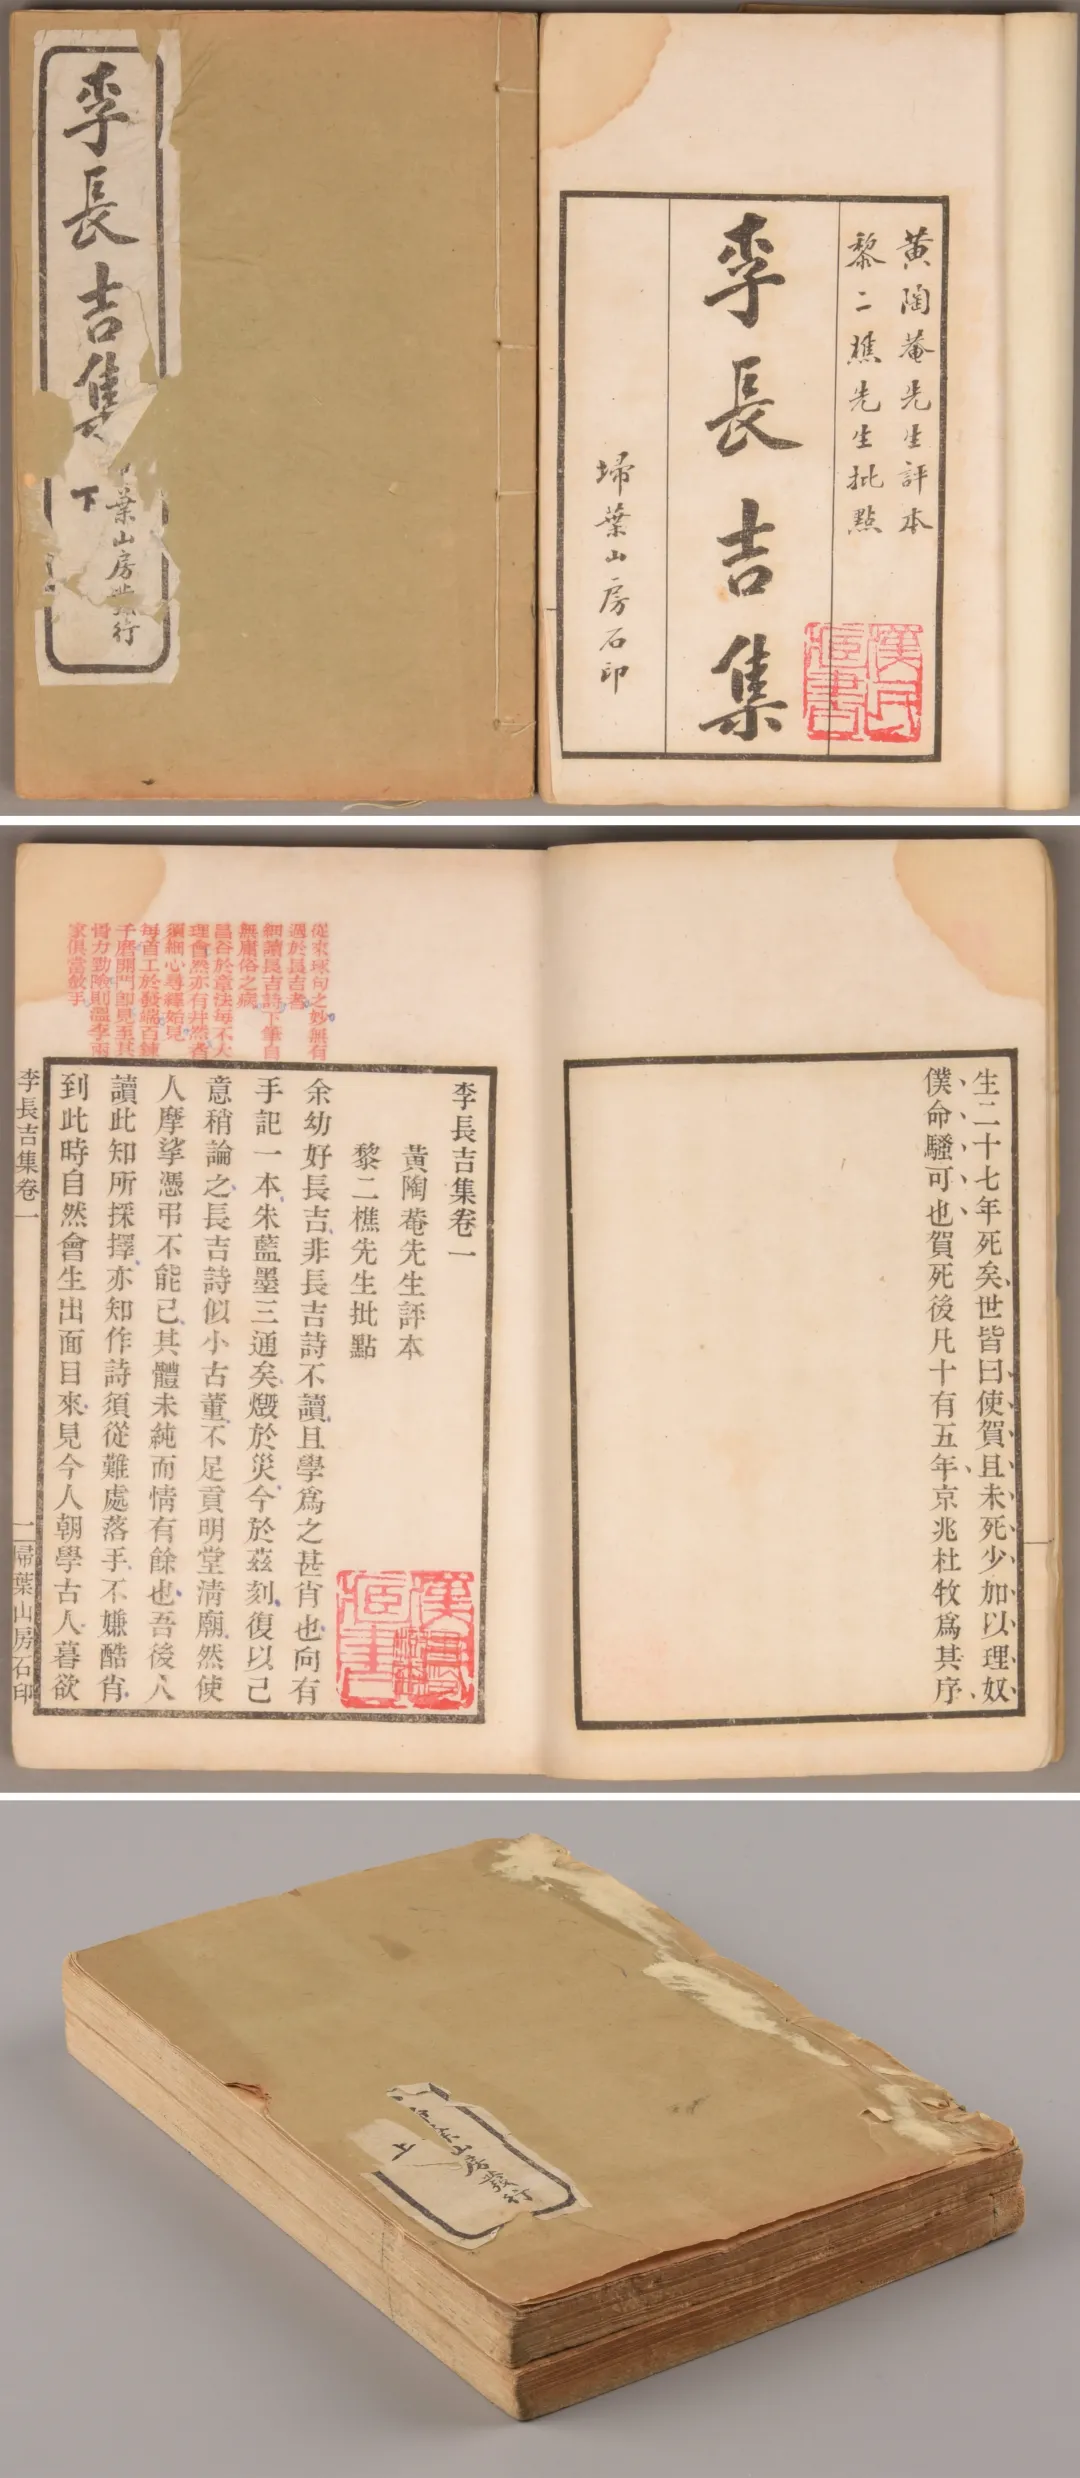 李長吉集
下
葉山房發行
黄陶菴先生評本
黎二樵先生批點
李長吉集
埽葉山房石印
漢氏
書
生二十七年死矣世皆曰使賀且未死少加以理奴
僕命騷可也賀死後凡十有五年京兆杜牧爲其序
從來琢句之妙無有
過於長吉者
細讀長吉詩下筆自
無庸俗之病
昌谷於章法每不大
理會然亦有井然者
須細心尋繹始見
每首工於發端百鍊
千磨開門即見至其
骨力勁險則溫李兩
家俱當斂手
李長吉集卷一
黃陶菴先生評本
黎二樵先生批點
余幼好長吉非長吉詩不讀且學爲之甚肖也向有
手記一本朱藍墨三通矣燬於災今於茲刻復以己
意稍論之長吉詩似小古董不足貢明堂清廟然使
人摩挲憑弔不能已其體未純而情有餘也吾後人
讀此知所採擇亦知作詩須從難處落手不嫌酷肖
到此時自然會生出面目來見今人朝學古人暮欲
李長吉集卷一
一
埽葉山房石印
上
山房發行